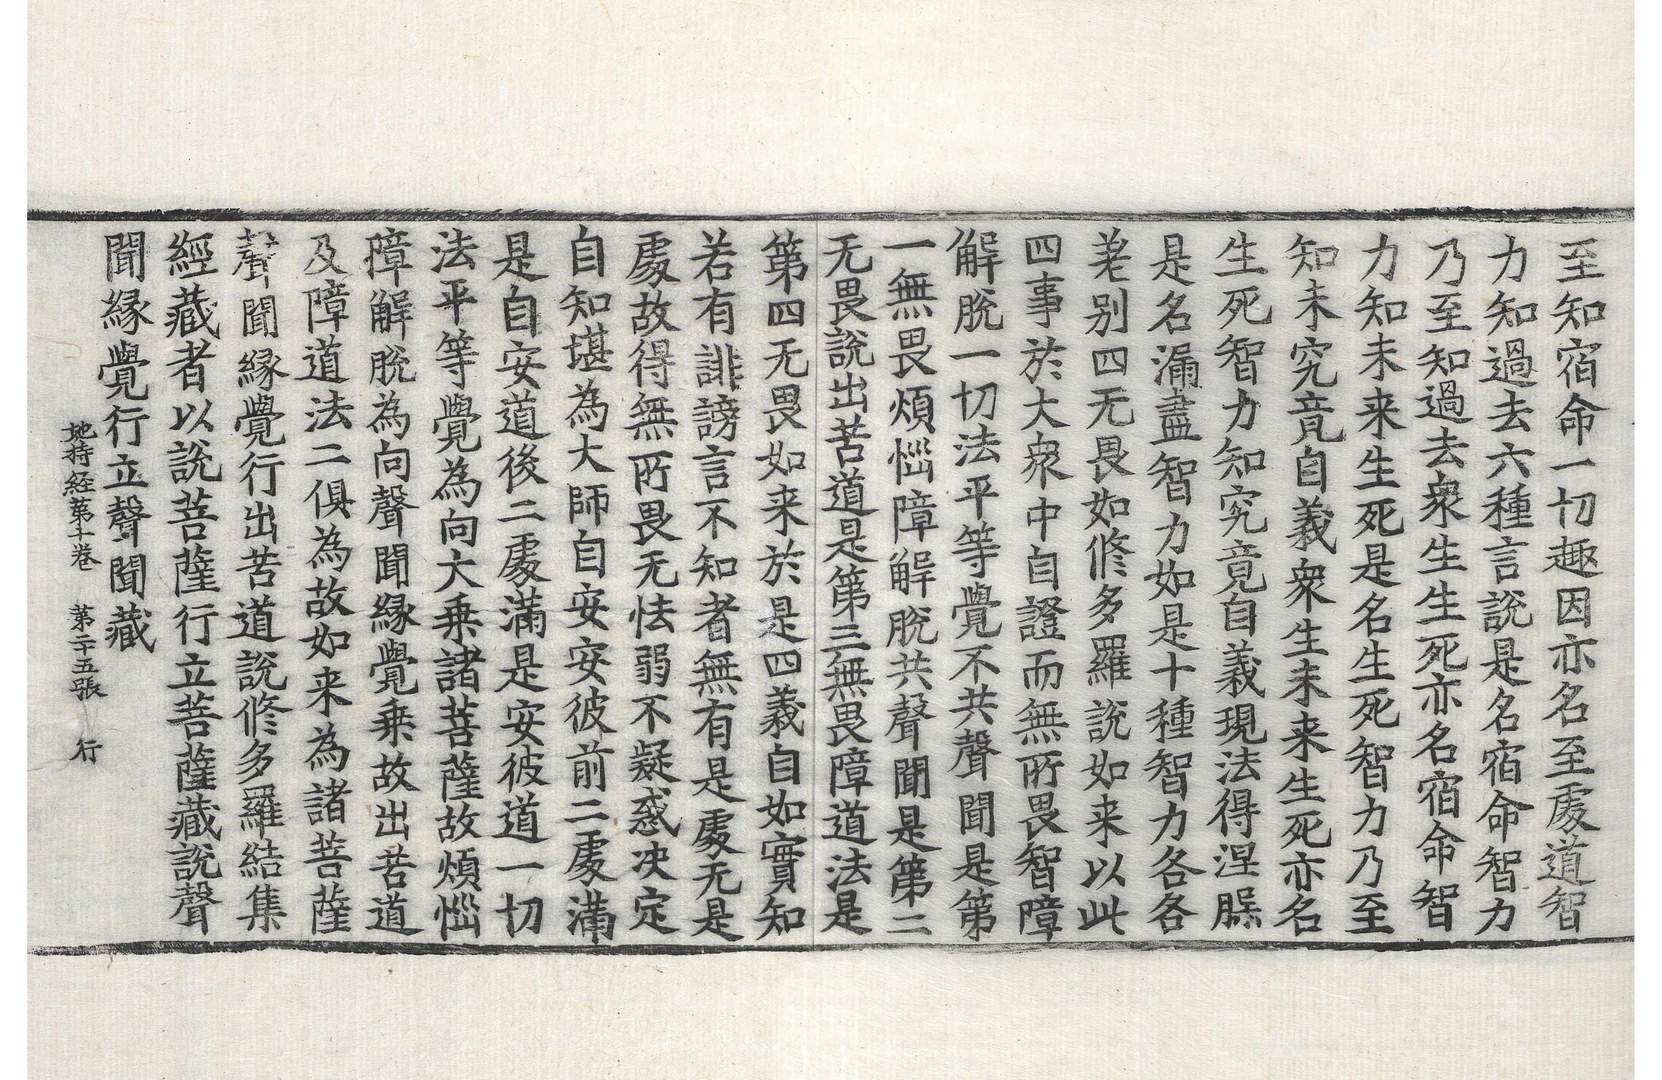 至知宿命一切趣因亦名至處道智
力知過去六種言說是名宿命智力
乃至知過去衆生生死亦名宿命智
力知未来生死是名生死智力乃至
知未究竟自義衆生未来生死亦名
生死智力知究竟自義現法得涅槃
是名漏盡智力如是十種智力各各
差别四无畏如修多羅說如来以此
四事於大衆中自證而無所畏智障
解脫一切法平等覺不共聲聞是第
一無畏煩惱障解脫共聲聞是第二
无畏說出苦道是第三無畏障道法是
第四无畏如来於是四義自如實知
若有誹謗言不知者無有是處无是
處故得無所畏无怯弱不疑惑决定
自知堪為大師自安安彼前二處滿
是自安道後二處滿是安彼道一切
法平等覺為向大乗諸菩薩故煩惱
障解脫為向聲聞縁覺乗故出苦道
及障道法二俱為故如来為諸菩薩
聲聞縁覺行出苦道說修多羅結集
經藏者以說菩薩行立菩薩藏說聲
聞縁覺行立聲聞藏
地持経第十卷 第二十五張 行